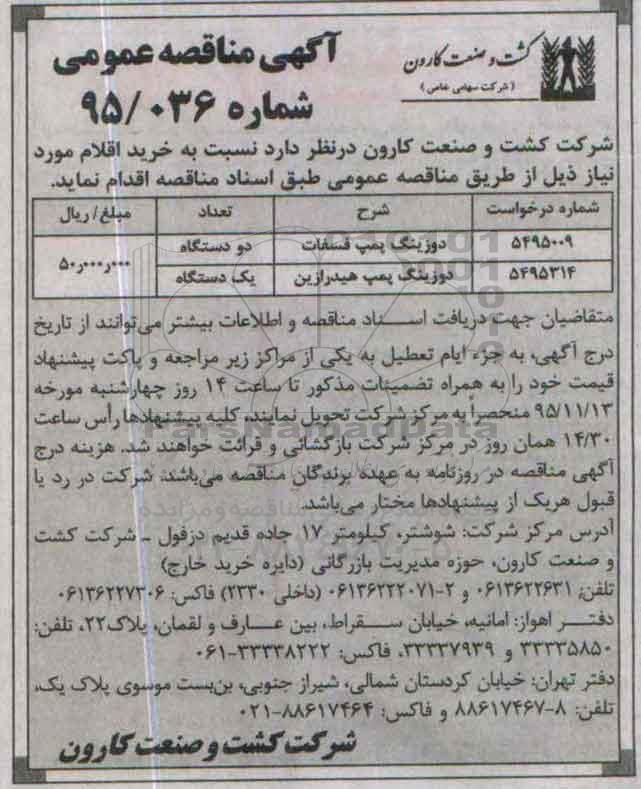 کشت و صنعت کارون
(شرکت سهامی خاص)
آگهی مناقصه عمومی
شماره ۹۵/۰۳۶
شرکت کشت و صنعت کارون درنظر دارد نسبت به خرید اقلام مورد
نیاز ذیل از طریق مناقصه عمومی طبق اسناد مناقصه اقدام نماید.
شماره درخواست شرح تعداد مبلغ/ ریال
۵۴۹۵۰۰۹ دوزینگ پمپ فسفات دو دستگاه ۵۰٫۰۰۰٫۰۰۰
۵۴۹۵۳۱۴ دوزینگ پمپ هیدرازین یک دستگاه
متقاضیان جهت دریافت اسناد مناقصه و اطلاعات بیشتر می‌توانند از تاریخ
درج آگهی، به جزء ایام تعطیل به یکی از مراکز زیر مراجعه و پاکت پیشنهاد
قیمت خود را به همراه تضمینات مذکور تا ساعت ۱۴ روز چهارشنبه مورخه
۹۵/۱۱/۱۳ منحصراً به مرکز شرکت تحویل نمایند. کلیه پیشنهادها رأس ساعت
۱۴/۳۰ همان روز در مرکز شرکت بازگشائی و قرائت خواهند شد. هزینه درج
آگهی مناقصه در روزنامه به عهده برندگان مناقصه می‌باشد. شرکت در رد یا
قبول هریک از پیشنهادها مختار می‌باشد.
آدرس مرکز شرکت: شوشتر، کیلومتر ۱۷ جاده قدیم دزفول ـ شرکت کشت
و صنعت کارون، حوزه مدیریت بازرگانی (دایره خرید خارج)
تلفن: ۰۶۱۳۶۲۲۶۳۱ و ۲-۰۶۱۳۶۲۲۲۰۷۱ (داخلی ۲۳۳۰) فاکس: ۰۶۱۳۶۲۲۷۳۰۶
دفتر اهواز: امانیه، خیابان سقراط، بین عارف و لقمان، پلاک۲۲، تلفن:
۳۳۳۳۵۸۵۰ و ۳۳۳۳۷۹۳۹، فاکس: ۳۳۳۳۸۲۲۲-۰۶۱
دفتر تهران: خیابان کردستان شمالی، شیراز جنوبی، بن‌بست موسوی پلاک یک،
تلفن: ۸-۸۸۶۱۷۴۶۷ و فاکس: ۸۸۶۱۷۴۶۴-۰۲۱
شرکت کشت و صنعت کارون
ParsNamadData